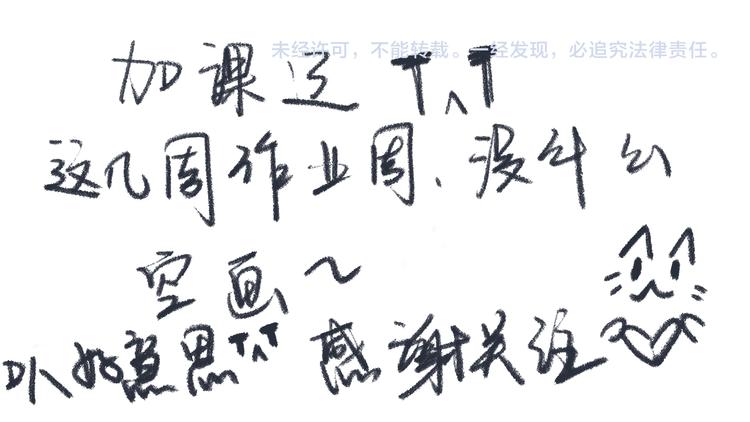 未经许可，不能转载。一经发现，必追究法律责任。
加课还 T^T
这几周作业周、没什么
空画~
不好意思 T^T 感谢关注